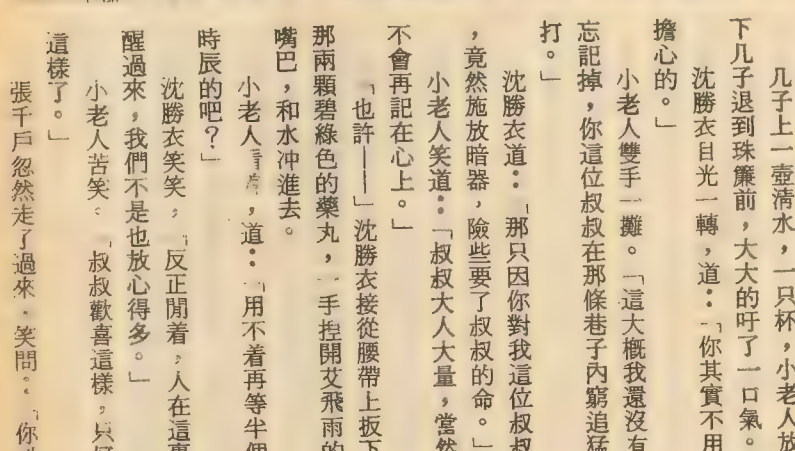 几子上一壺清水，一只杯，小老人放
下几子退到珠簾前，大大的吁了一口氣。
沈勝衣目光一轉，道：「你其實不用
擔心的。」
小老人雙手一攤。「這大概我還沒有
忘記掉，你這位叔叔在那條巷子內窮追猛
打。」
沈勝衣道：「那只因你對我這位叔叔
，竟然施放暗器，險些要了叔叔的命。」
小老人笑道：「叔叔大人大量，當然
不會再記在心上。」
「也許——」沈勝衣接從腰帶上扳下
那兩顆碧綠色的藥丸，一手揑開艾飛雨的
嘴巴，和水冲進去。
小老人看着，道：「用不着再等半個
時辰的吧？」
沈勝衣笑笑。「反正閒着，人在這裏
醒過來，我們不是也放心得多。」
小老人苦笑。「叔叔歡喜這樣，只好
這樣了。」
張千戶忽然走了過來，笑問：「你